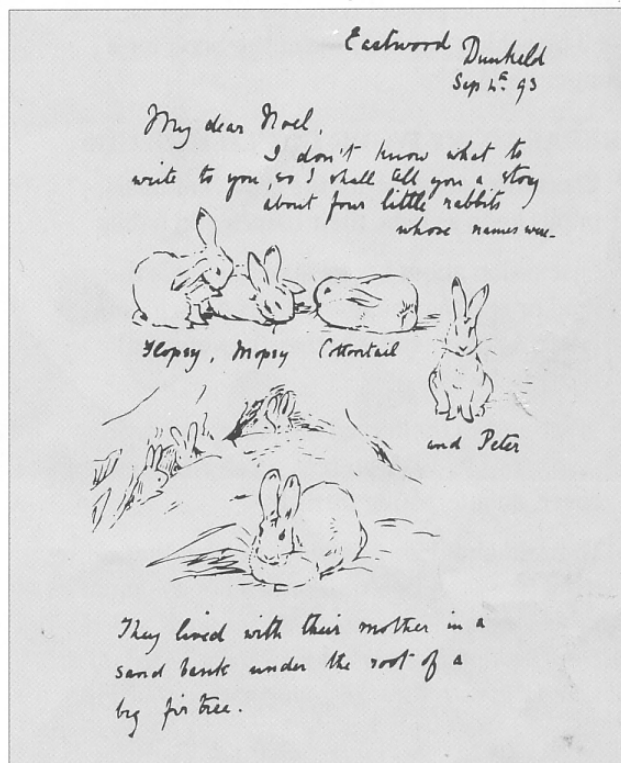 Eastwood Dunkeld
Sep 4th 93
My dear Noel,
I don't know what to
write to you, so I shall tell you a story
about four little rabbits
whose names were—
Flopsy, Mopsy Cottontail
and Peter
They lived with their mother in a
sand bank under the root of a
big fir tree.